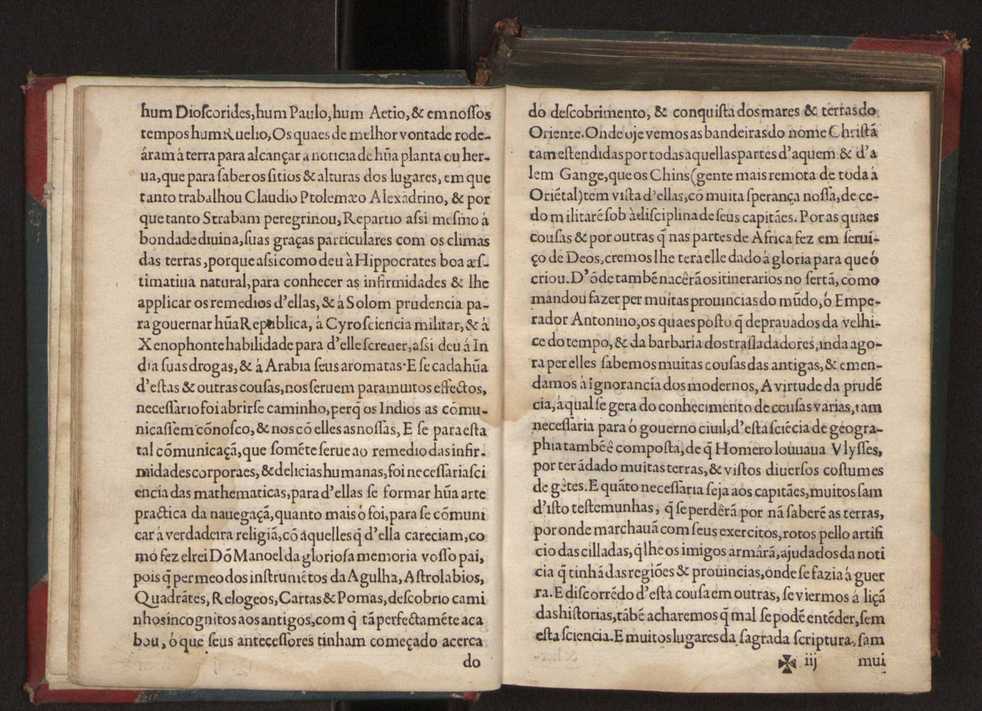 hum Dioſcorides,hum Paulo,hum Aetio,& em noſſos
tempos hum Ruelio,Os quaes de melhor vontade rode-
áram à terra para alcançar a noticia de hũa planta ou her-
ua,que para ſaber os ſitios & alturas dos lugares, em que
tanto trabalhou Claudio Ptolemæo Alexãdrino, & por
que tanto Strabam peregrinou, Repartio aſsi meſmo á
bondade diuina,ſuas graças particulares com os climas
das terras ,porque aſsi como deu à Hippocrates boa æſ-
timatiua natural,para conhecer as infirmidades & lhe
applicar os remedios d'ellas, & á Solom prudencia pa-
ra gouernar hũa Republica, á Cyro ſciencia militar,& á
Xenophonte habilidade para d'elle ſcreuer,aſsi deu á In
dia ſuas drogas, & á Arabia ſeus aromatas· E ſe cada hũa
d'eſtas & outras couſas, nos ſeruem para muitos effectos,
neceſſario foi abrirſe caminho,perq̃ os Indios as cõmu-
nicaſſem cõnoſco, & nos cõ elles as noſſas, E ſe para eſta
tal cõmunicaçã,que ſomẽte ſerue ao remedio das infir-
midades corporaes, & delicias humanas, foi neceſſaria ſci
encia das mathematicas,para d'ellas ſe formar hũa arte
practica da nauegaçã,quanto mais ó foi,para ſe cõmuni
car á verdadeira religiã,cõ áquelles q̃ d'ella careciam,co
mo fez elrei Dõ Manoel da glorioſa memoria voſſo pai,
pois q̃ per meo dos inſtrumẽtos da Agulha, Aſtrolabios,
Quadrãtes, Relogeos, Cartas & Pomas, deſcobrio cami
nhos incognitos aos antigos,com q̃ tã perfectamẽte aca
bou , ó que ſeus anteceſſores tinham começado acerca
do
do deſcobrimento, & conquiſta dos mares & terras do
Oriente.Onde oje vemos as bandeiras do nome Chriſtã
tam eſtendidas por todas aquellas partes d'aquem & d'a
lem Gange,que os Chins(gente mais remota de toda à
Oriẽtal)tem viſta d'ellas,cõ muita ſperança noſſa,de ce-
do militarẽ ſob à diſciplina de ſeus capitães. Por as quaes
couſas & por outras q̃ nas partes de Africa fez em ſerui-
ço de Deos,cremos lhe tera elle dado á gloria para que ó
criou.D'õde tambẽ nacẽrã os itinerarios no ſertã, como
mandou fazer per muitas prouincias do mũdo, ó Empe-
rador Antonino,os quaes poſto q̃ deprauados da velhi-
ce do tempo, & da barbaria dos trasladadores,inda ago-
ra per elles ſabemos muitas couſas das antigas,& emen-
damos à ignorancia dos modernos, A virtude da prudẽ
cia,á qual ſe gera do conhecimento de couſas varias,tam
neceſſaria para ó gouerno ciuil,d'eſta ſciẽcia de géogra-
phia tambẽ ê compoſta,de q̃ Homero louuaua Vlyſſes,
por ter ãdado muitas terras,& viſtos diuerſos coſtumes
de gẽtes.E quãto neceſſaria ſeja aos capitães,muitos ſam
d'iſto teſtemunhas, q̃ ſe perdêrã por nã ſaberẽ as terras,
por onde marchauã com ſeus exercitos,rotos pello artifi
cio das cilladas, q̃ lhe os imigos armárã,ajudados da noti
cia q̃ tinhã das regiões & prouincias,onde ſe fazia á guer
ra.E diſcorrẽdo d'eſta couſa em outras, ſe viermos á liçã
das hiſtorias,tãbẽ acharemos q̃ mal ſe podẽ entẽder,ſem
eſta ſciencia.E muitos lugares da ſagrada ſcriptura, ſam
✠ iij mui